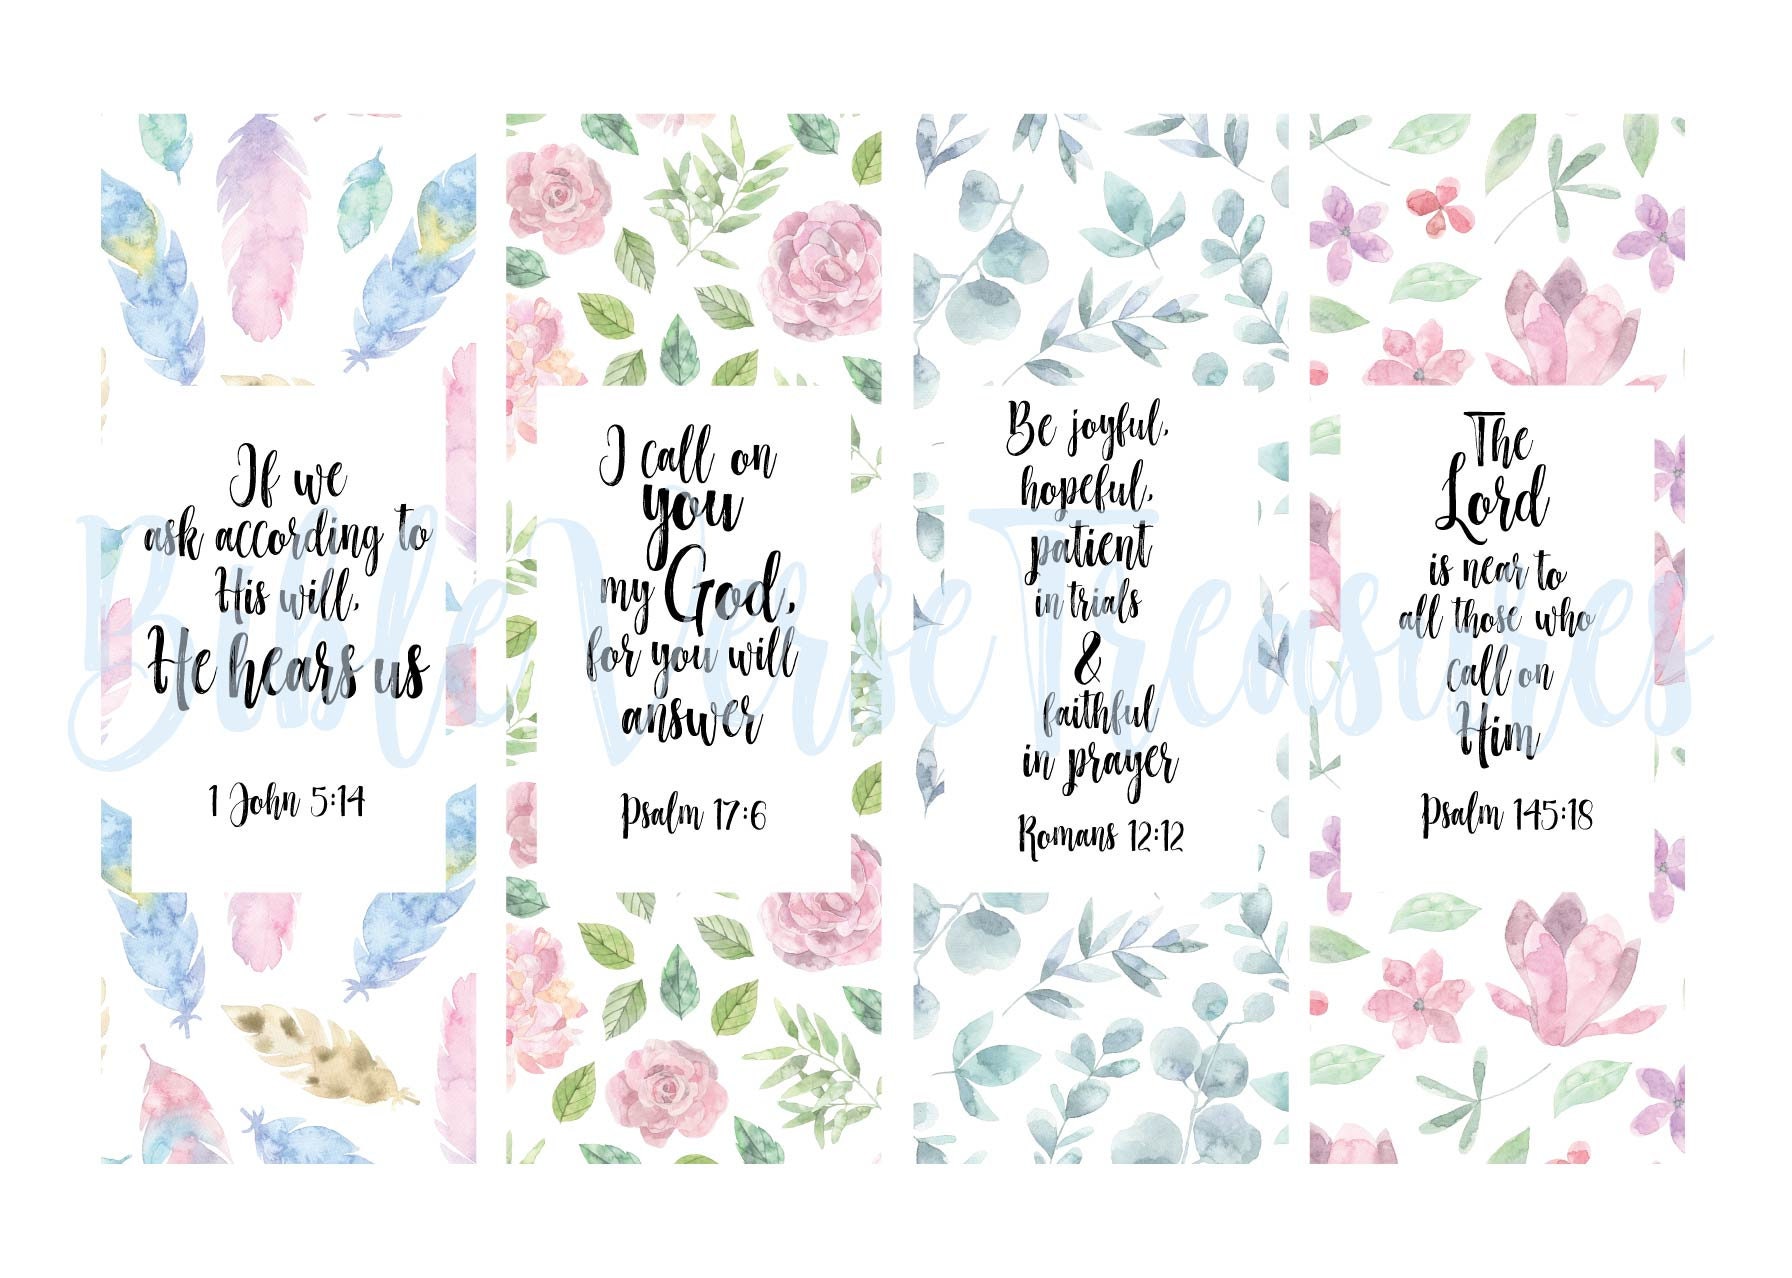 If we
ask according to
His will,
He hears us
1 John 5:14
I call on
you
my God,
for you will
answer
Psalm 17:6
Be joyful,
hopeful,
patient
in trials
&
faithful
in prayer
Romans 12:12
The
Lord
is near to
all those who
call on
Him
Psalm 145:18
Bible Verse Treasures